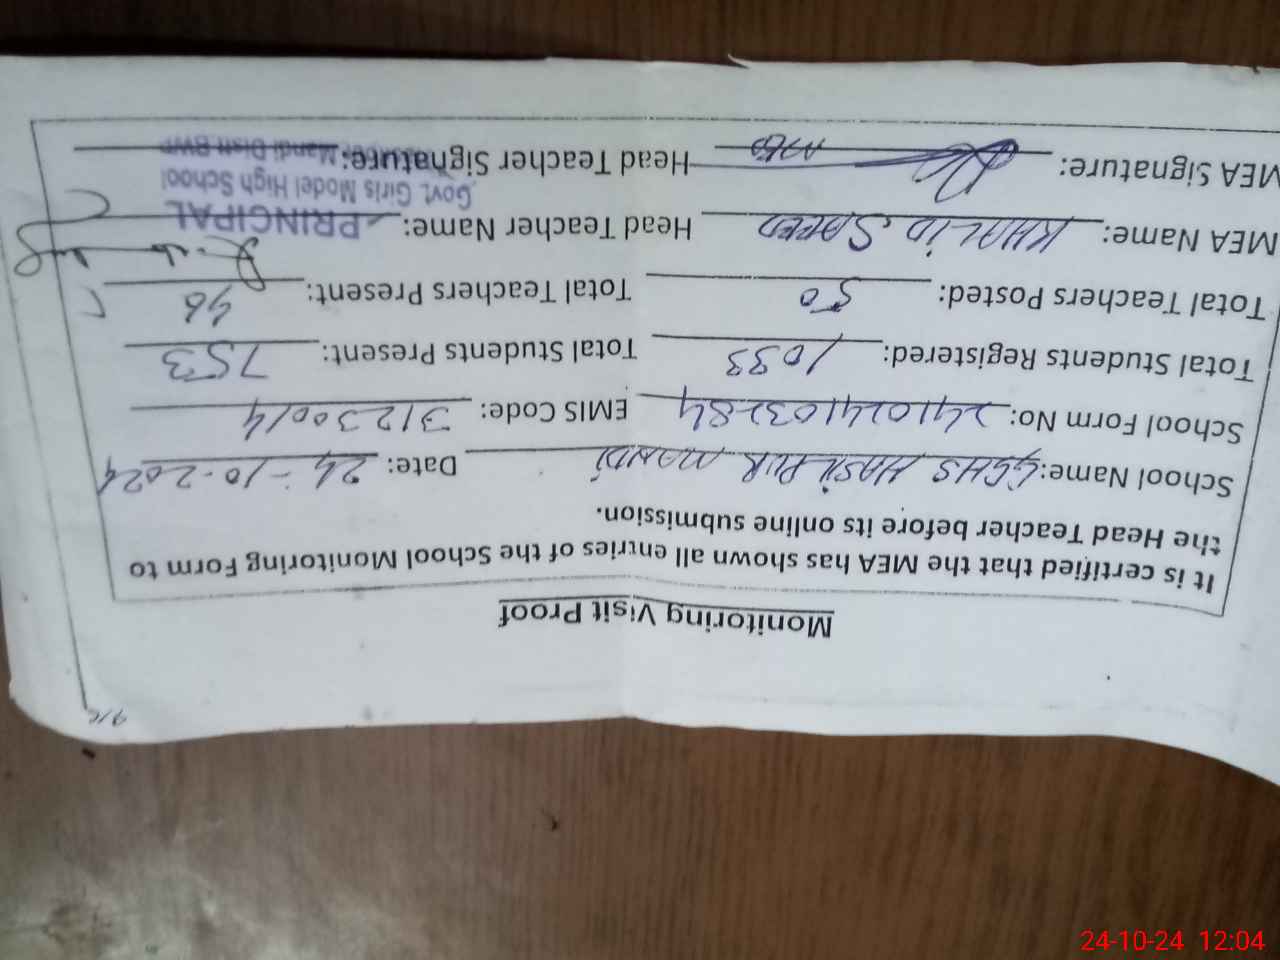 Monitoring Visit Proof
It is certified that the MEA has shown all entries of the School Monitoring Form to
the Head Teacher before its online submission.
School Name: GGHS HASILPUR MANDI Date: 24-10-2024
School Form No: 241024103284 EMIS Code: 31230014
Total Students Registered: 1033 Total Students Present: 753
Total Teachers Posted: 50 Total Teachers Present: 46
MEA Name: KHALID SAEED Head Teacher Name: PRINCIPAL
Govt. Girls Model High School
MEA Signature: Head Teacher Signature: Mandi Distt BWP
24-10-24 12:04